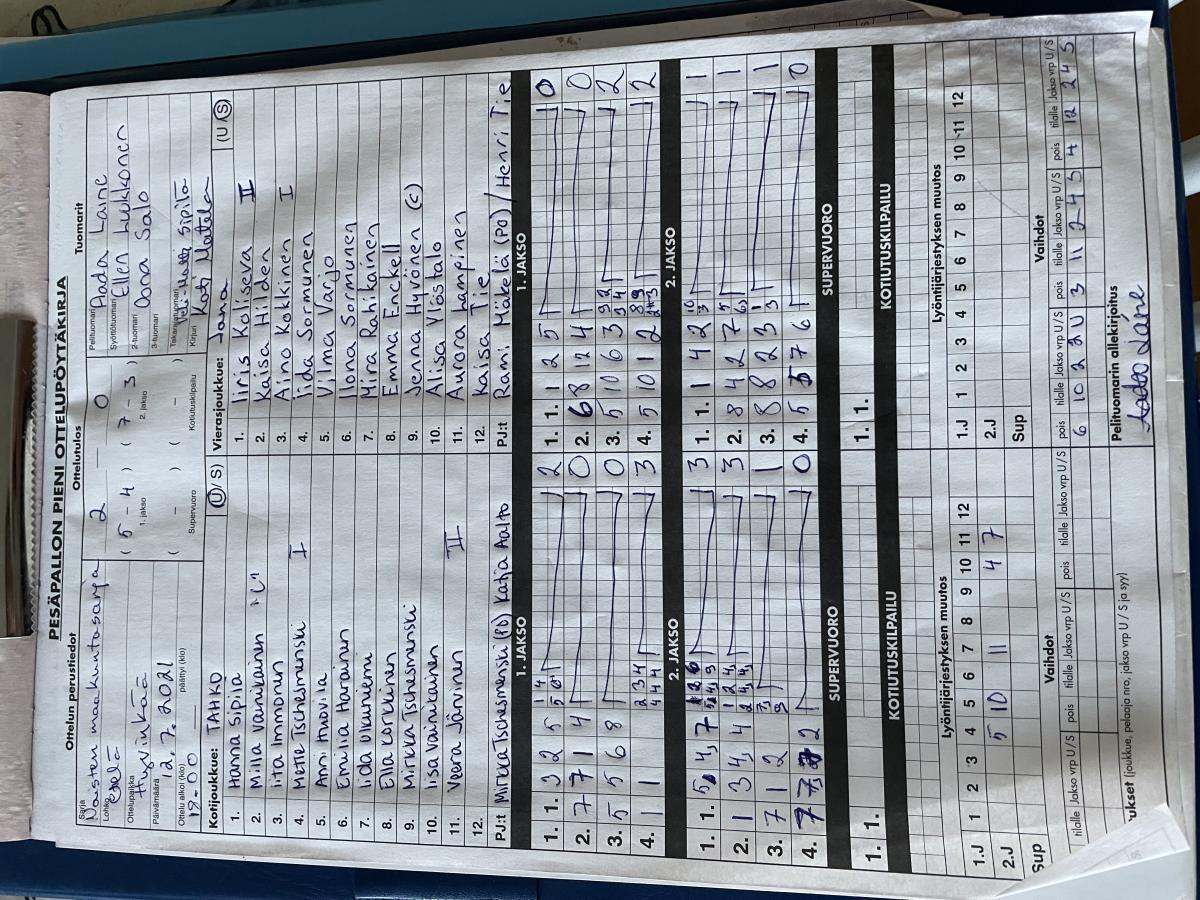 PESÄPALLON PIENI OTTELUPÖYTÄKIRJA
Ottelun perustiedot
Ottelutulos
Tuomarit
Sarja
Naisten maakuntasarja
Lohko
etelä
Ottelupaikka
Hyvinkää
Päivämäärä
2.7.2021
Ottelu alkoi (klo)
18-00
päättyi (klo)
2 0
( 5 - 4 ) ( 7 - 3 )
1. jakso 2. jakso
( - ) ( - )
Supervuoro Kotiutuskilpailu
Pelituomari
Aada Laine
Syöttötuomari
Ellen Hukkonen
2-tuomari
Oona Salo
3-tuomari
Takarajatuomari
Sipilä
Kirjuri
Kati Mattila
Kotijoukkue: TAHKO (U/S)
1. Hanna Sipilä
2. Milla Vainilainen "C"
3. Iita Immonen
4. Mette Tschesmenski I
5. Anni Knovila
6. Emilia Harainen
7. Iida Ukunniemi
8. Ella Korkiinen
9. Mirkka Tschesmenski
10. Iisa Vainikainen
11. Veera Järvinen II
12.
PJ:t Mirkka Tschesmenski (PD) Katja Aalto
Vierasjoukkue: Jana (U/S)
1. Iiris Kolliseva II
2. Kaisa Hilden
3. Aino Kokkinen I
4. Iida Sormunen
5. Vilma Varjo
6. Ilona Sormunen
7. Mira Rahikainen
8. Emma Enckell
9. Jenna Hyvönen (C)
10. Alisa Ylöstalo
11. Aurora Lampinen
12. Kaisa Tie
PJ:t Rami Mäkelä (PD) / Henri Tie
1. JAKSO 1. JAKSO
1. 1. 3 2 5 2
2. 7 7 1 4 0
3. 5 5 6 8 0
4. 1 1 3
1. 1. 1 2 5 0
2. 6 8 12 4 0
3. 5 10 6 3 2
4. 5 10 1 2 2
2. JAKSO 2. JAKSO
1. 1. 5 4, 7 3
2. 1 3 4, 4 3
3. 7 1 2 1
4. 7 7 2 0
1. 1. 1 4 2 1
2. 8 4 2 7 1
3. 8 8 2 3 1
4. 5 5 7 6 0
SUPERVUORO SUPERVUORO
1. 1.
1. 1.
KOTIUTUSKILPAILU KOTIUTUSKILPAILU
Lyöntijärjestyksen muutos
1.J 1 2 3 4 5 6 7 8 9 10 11 12
2.J 5 10 11 4 7
Sup
Lyöntijärjestyksen muutos
1.J 1 2 3 4 5 6 7 8 9 10 11 12
2.J
Sup
Vaihdot
tilalle Jakso vrp U/S pois tilalle Jakso vrp U/S pois tilalle Jakso vrp U/S pois tilalle Jakso vrp U/S
Vaihdot
pois tilalle Jakso vrp U/S pois tilalle Jakso vrp U/S pois tilalle Jakso vrp U/S
6 10 2 2 U 3 11 2 4 S 4 12 2 4 S
ukset (joukkue, pelaaja nro, jakso vrp U/S ja syy)
Pelituomarin allekirjoitus